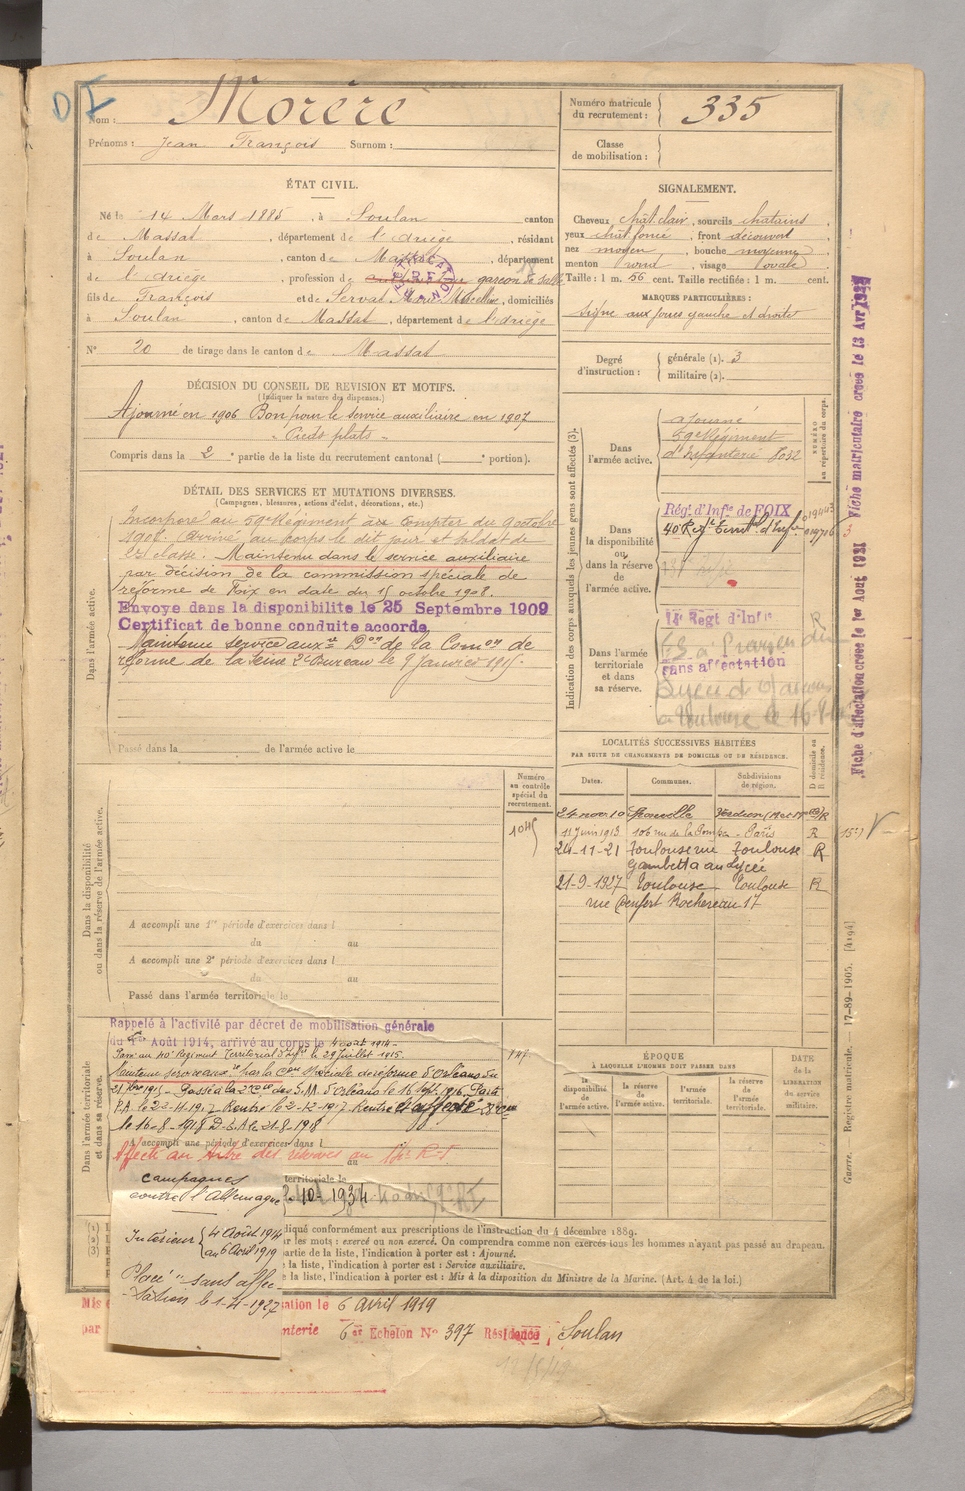 Nom : Morère
Prénoms : Jean François Surnom :
ÉTAT CIVIL.
Né le 14 Mars 1885, à Soulan canton
de Massat, département de l'Ariège, résidant
à Soulan, canton de Massat, département
de l'Ariège, profession de garçon de salle
fils de François et de Servat Marie Marceline, domiciliés
à Soulan, canton de Massat, département de l'Ariège
N° 20 de tirage dans le canton de Massat
DÉCISION DU CONSEIL DE REVISION ET MOTIFS.
(Indiquer la nature des dispenses.)
Ajourné en 1906 Bon pour le service auxiliaire en 1907
- Pieds plats -
Compris dans la 2e partie de la liste du recrutement cantonal ( e portion).
DÉTAIL DES SERVICES ET MUTATIONS DIVERSES.
(Campagnes, blessures, actions d'éclat, décorations, etc.)
Dans l'armée active.
Incorporé au 59e Régiment à compter du 9 octobre
1908. Arrivé au corps le dit jour et soldat de
2e classe. Maintenu dans le service auxiliaire
par décision de la commission spéciale de
réforme de Foix en date du 15 octobre 1908.
Envoyé dans la disponibilité le 25 Septembre 1909
Certificat de bonne conduite accordé.
Maintenu service auxre Don de la Comon de
réforme de la Seine 2e Bureau le 9 janvier 1915.
Passé dans la de l'armée active le
Dans la disponibilité ou dans la réserve de l'armée active.
Numéro au contrôle spécial du recrutement.
1045
A accompli une 1re période d'exercices dans l
du au
A accompli une 2e période d'exercices dans l
du au
Passé dans l'armée territoriale le
Dans l'armée territoriale et dans sa réserve.
Rappelé à l'activité par décret de mobilisation générale
du Août 1914, arrivé au corps le 4 août 1914-
Pass. au 40e Régiment Territorial d'Infie le 29 juillet 1915.
Maintenu serv. auxre par la Con Spéciale de réforme d'Orléans du
le 16-8-1918
A accompli une période d'exercices dans l
au
territoriale le
10-1934
campagnes
contre l'Allemagne
Intérieur { 4 Août 1914
au 6 Avril 1919
Placé "sans affec-
-tation le 1-4-1927
diqué conformément aux prescriptions de l'instruction du 4 décembre 1889.
r les mots : exercé ou non exercé. On comprendra comme non exercés tous les hommes n'ayant pas passé au drapeau.
partie de la liste, l'indication à porter est : Ajourné.
e la liste, l'indication à porter est : Service auxiliaire.
e la liste, l'indication à porter est : Mis à la disposition du Ministre de la Marine. (Art. 4 de la loi.)
Mis sation le 6 avril 1919
par nterie 6e Echelon N° 397 Résidence Soulan
Numéro matricule du recrutement : 335
Classe de mobilisation :
SIGNALEMENT.
Cheveux chât clair, sourcils châtains,
yeux chât foncé, front découvert,
nez moyen, bouche moyenne,
menton rond, visage ovale
Taille : 1 m. 56 cent. Taille rectifiée : 1 m. cent.
MARQUES PARTICULIÈRES :
signe aux joues gauche et droite
Degré d'instruction : générale (1). 3
militaire (2).
Indication des corps auxquels les jeunes gens sont affectés (3).
NUMÉRO au répertoire du corps.
Dans l'armée active.
ajourné
59e Régiment
d'Infanterie 8032
Dans la disponibilité ou dans la réserve de l'armée active.
Rég. d'Infie de FOIX
40e Régt Territal d'Infie
Dans l'armée territoriale et dans sa réserve.
Regt d'Infie
sans affectation
LOCALITÉS SUCCESSIVES HABITÉES
PAR SUITE DE CHANGEMENTS DE DOMICILE OU DE RÉSIDENCE.
Dates. Communes. Subdivisions de région. D domicile ou R résidence.
24 nov 10
11 juin 1913 106 rue de la Pompe - Paris R
24-11-21 Toulouse rue Toulouse R
Gambetta au Lycée
21-9-1927 Toulouse Toulouse R
rue Denfert Rochereau 17
ÉPOQUE
À LAQUELLE L'HOMME DOIT PASSER DANS
la disponibilité de l'armée active. la réserve de l'armée active. l'armée territoriale. la réserve de l'armée territoriale.
DATE de la LIBÉRATION du service militaire.
Fiche d'affectation créée le 1er Août 1931
Fiche matriculaire créée le 13 Avr
Guerre. Registre matricule. 17-89-1905. [4194]